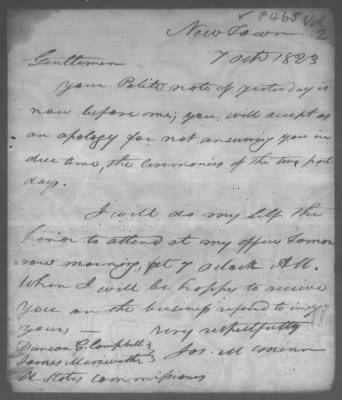 8465 Vol 2
New Town
7 Octr 1823
Gentlemen
your Polite note of yesterday is
now before me; you will accept as
an apology for not answering you in
due time, the ceremonies of the two past
days.
I will do my self the
honor to attend at my office tomor
row morning, at 7 oclock AM.
When I will be happy to receive
you on the business refered to in
yours, — very respectfully
Duncan G. Campbell &
James Meriwether Jos. McMinn
U States commissioners